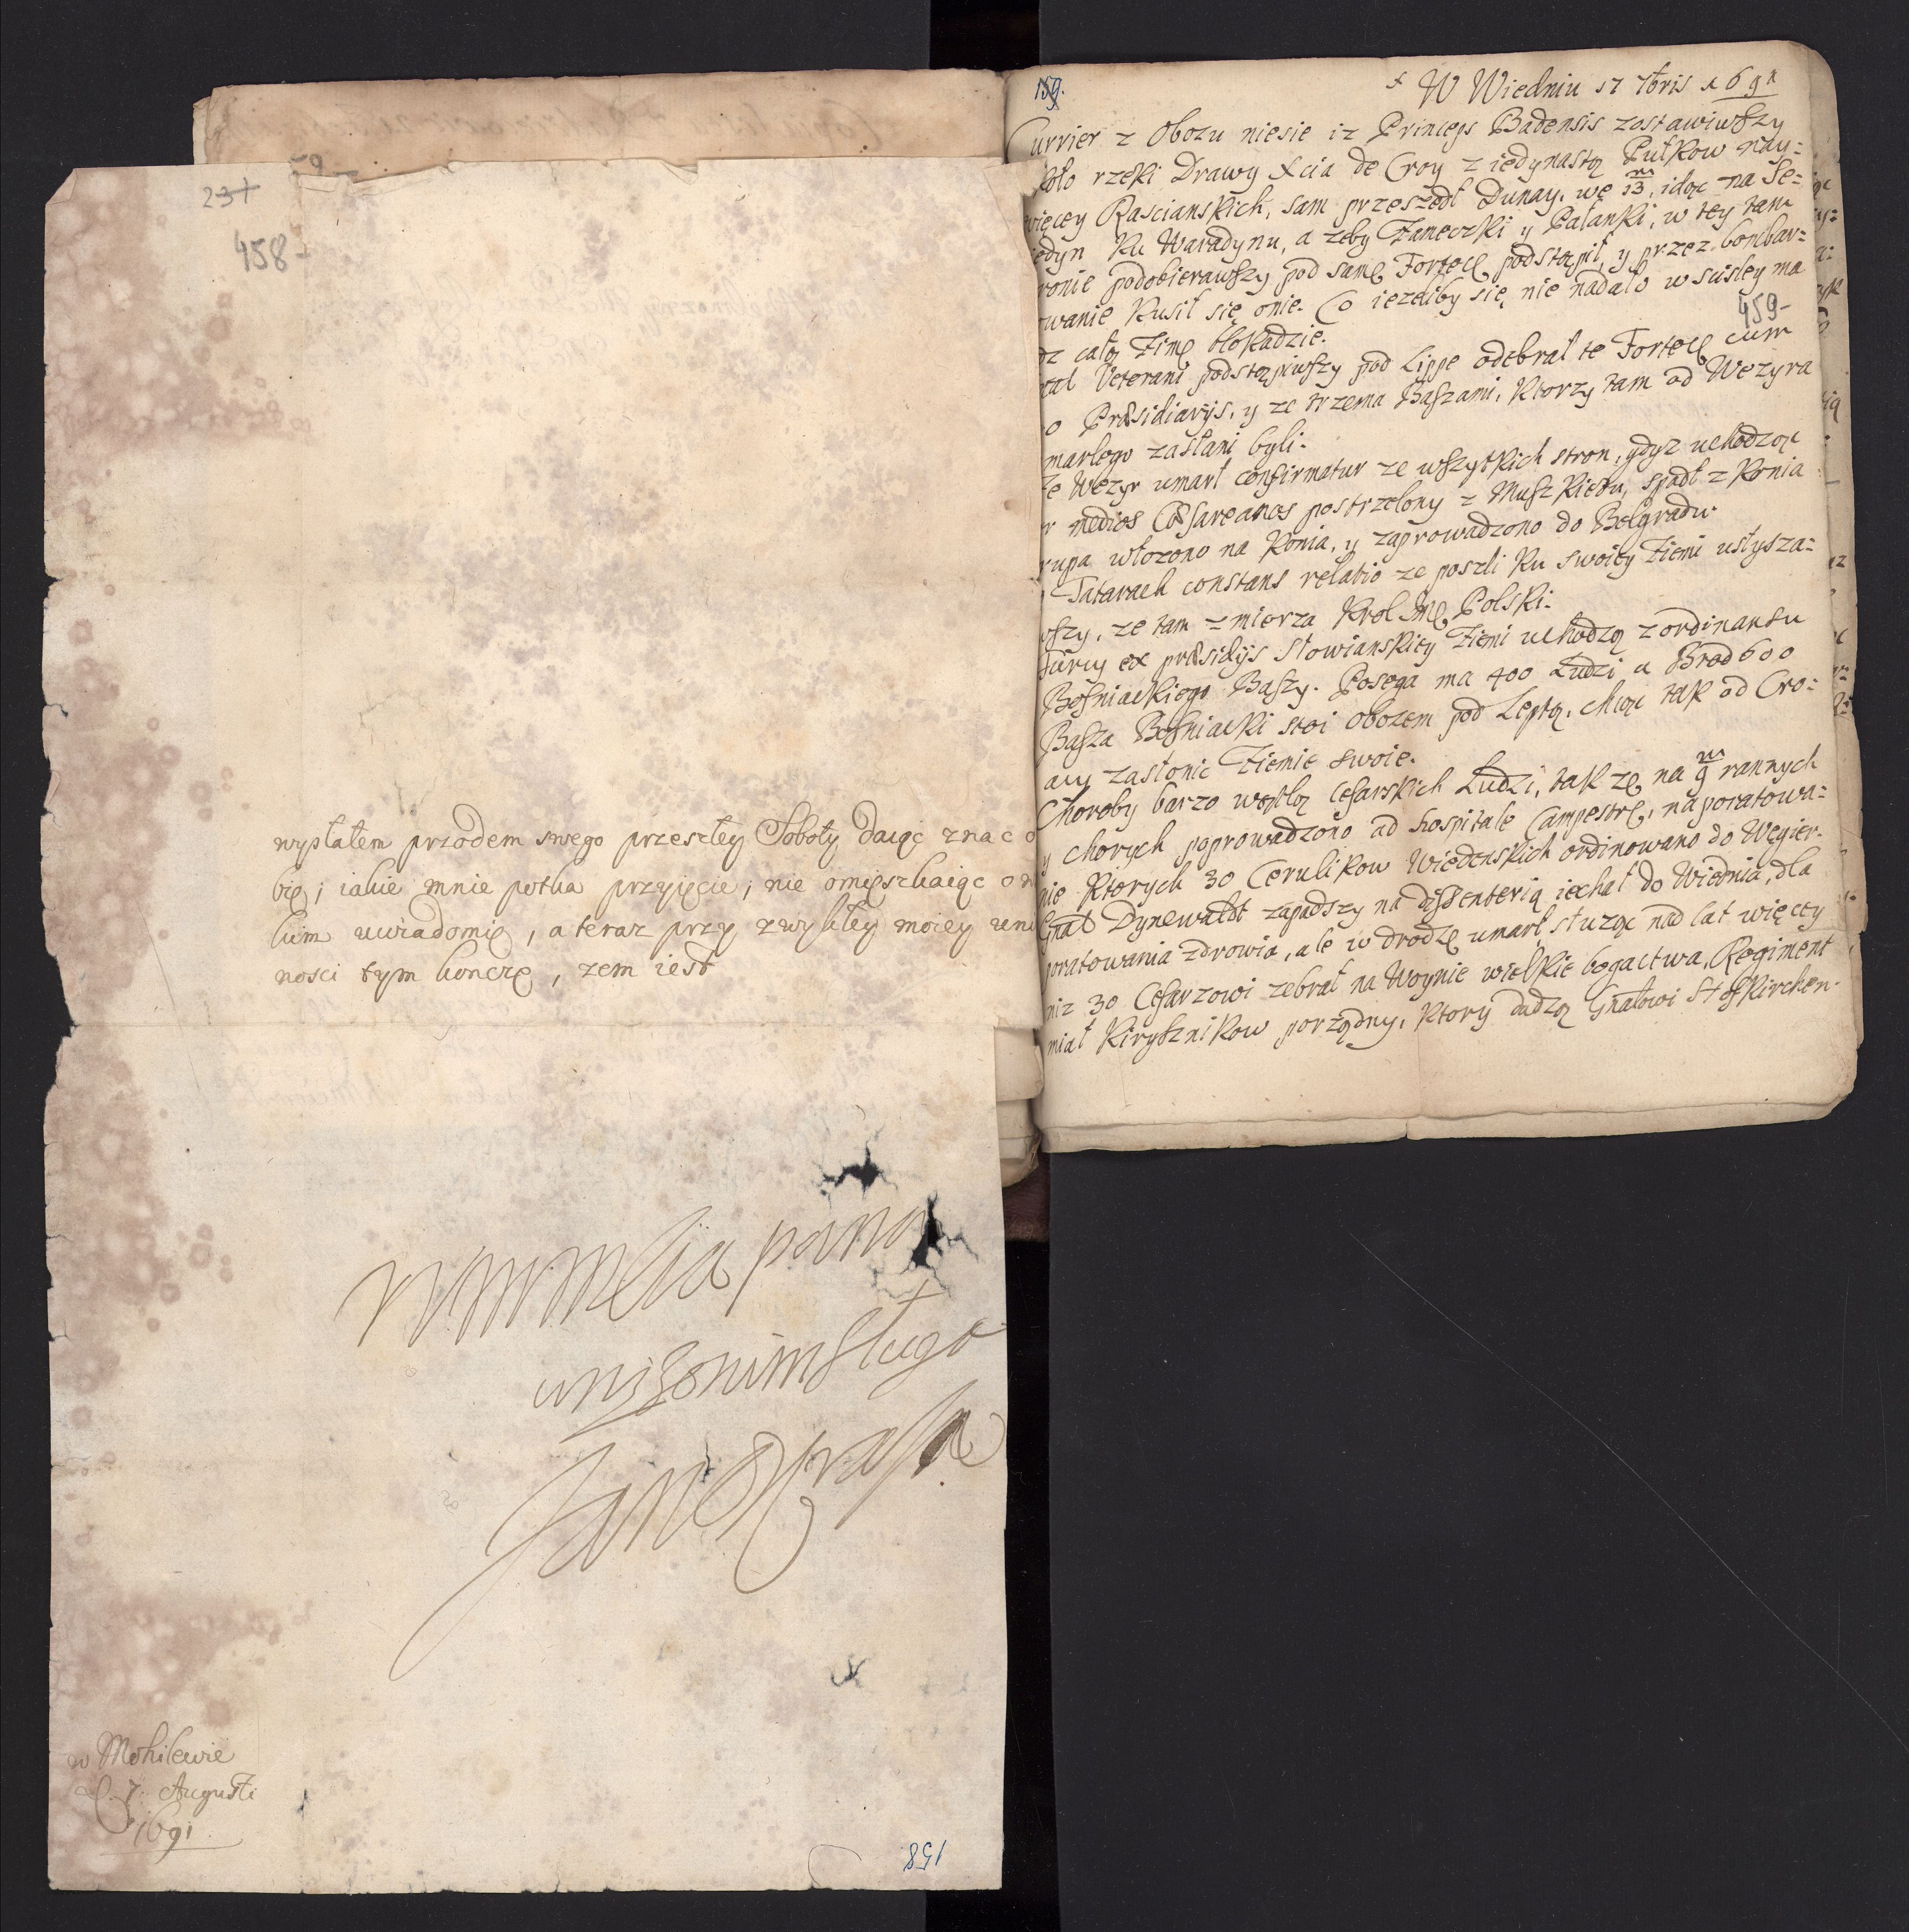 237
458
wysłałem przodem swego przeszłey Soboty daiąc znac o
bie, iakie mnie potka przyięcie; nie omięszkaiąc o
kim uwiadomię, a teraz przy zwykłey moiey uni
nosci tym konczę, zem iest
pana
unizonim sługo
w Mohilewie
d. 7. Augusti
1691
158
159.
W Wiedniu 17 7bris 1691
Currier z Obozu niesie iz Princeps Badensis zostawiwszy
koło rzeki Drawy Xcia de Croy z iedynastą Pułkow nay=
więcey Rascianskich, sam przeszedł Dunay, we 13 m, idąc na Se=
edyn ku Waradynu, a zeby Zameczki y Pałanki, w tey tam
ronie podobierawszy pod samę Fortecę podstąpił, y przez bombar=
owanie kusił się onie. Co iezeliby się nie nadało w scisley ma
dz całą Zimę blokadzie.
459
ral Veterani podstąpiwszy pod Lippe odebrał te Fortecę cum
o Præsidiarijs, y ze trzema Baszami, ktorzy tam od Wezyra
marłego zasłani byli.
Ze Wezyr umarł confirmatur ze wszytkich stron, gdyz uchodząc
r medios Cæsareanos postrzelony z Muszkietu, spadł z konia
rupa włozono na konia, y zaprowadzono do Belgradu.
Tatarach constans relatio ze poszli ku swoiey Ziemi usłysza=
wszy, ze tam zmierza Krol Jmę Polski.
Turcy ex præsidijs Słowianskiey Ziemi uchodzą z ordinansu
Bosniackiego Baszy. Posega ma 400 Ludzi a Brod 600
Basza Bosniacki stoi obozem pod Leptą, chcąc tak od Cro=
acy zasłonic Ziemie swoie.
Choroby barzo wątlą Cesarskich Ludzi, tak ze na 9 m rannych
y chorych poprowadzono ad hospitale Campestre, na poratowa=
nie ktorych 30 Cerulikow Wiedenskich ordinowano do Węgier.
Gnał Dynewałdt zapadszy na dissenterią iechał do Wiednia, dla
poratowania zdrowia, ale w drodze umarł, słuząc nad lat więcey
niz 30 Cesarzowi zebrał na Woynie wielkie bogactwa, Regiment
miał Kirysznikow porządny, ktory dadzą Gnałowi Stofkirchen.